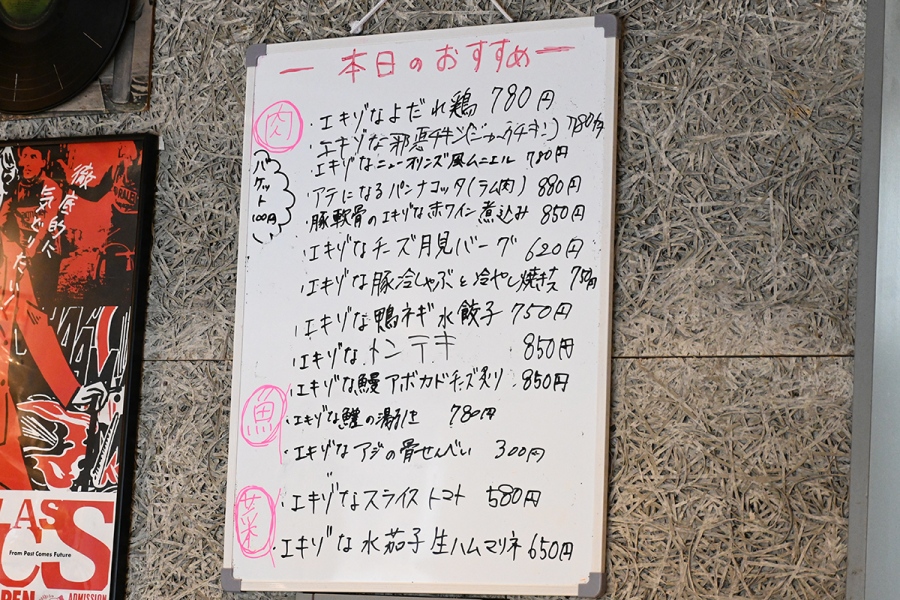 ー 本日のおすすめ ー
肉
・エキゾなよだれ鶏 780円
・エキゾな邪悪チキン(ジャークチキン) 780円
・エキゾなニューオリンズ風ムニエル 780円
・アテになるパンナコッタ(ラム肉) 880円
・豚軟骨のエキゾな赤ワイン煮込み 850円
・エキゾなチーズ月見バーグ 620円
・エキゾな豚冷しゃぶと冷やし焼きナス 750円
・エキゾな鴨ネギ水餃子 750円
・エキゾな トンテキ 850円
バケット
100円
魚
・エキゾな鰻アボカドチーズ炙り 850円
・エキゾな鱧の湯引き 780円
・エキゾなアジの骨せんべい 300円
菜
・エキゾなスライストマト 580円
・エキゾな水茄子生ハムマリネ 650円
徹底的に
気どりたい!
LAS
CS
From Past Comes Future
PEN
ADMISSION